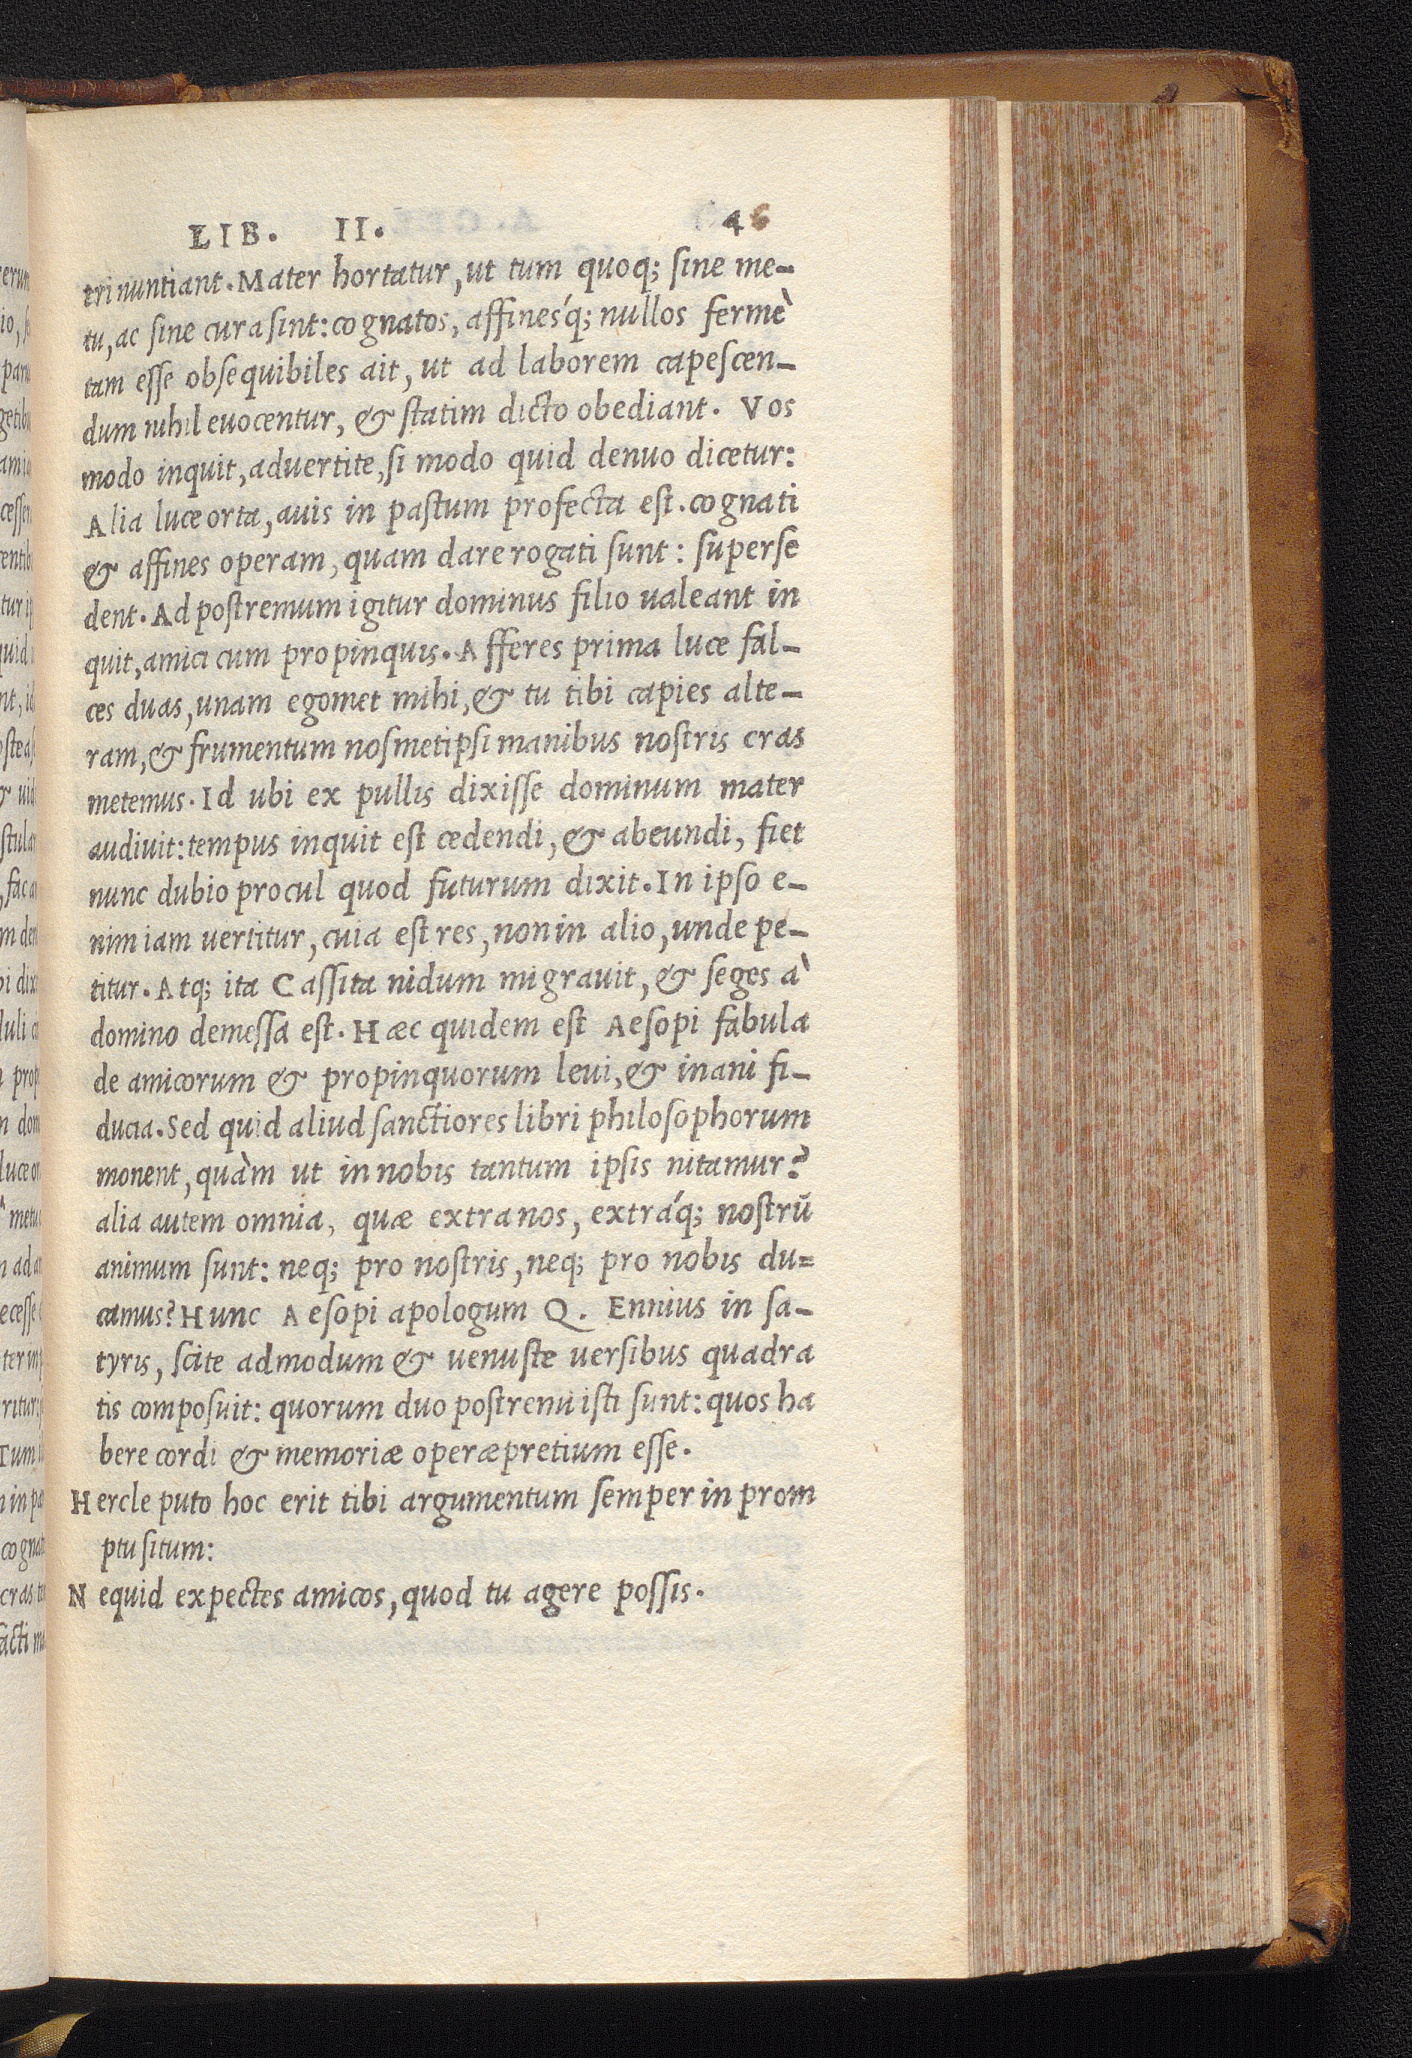 LIB. II. 46
tri nuntiant. Mater hortatur, ut tum quoq; sine me-
tu, ac sine cura sint: cognatos, affinesq́; nullos fermè
tam esse obsequibiles ait, ut ad laborem capescen-
dum nihil euocentur, & statim dicto obediant. Vos
modo inquit, aduertite, si modo quid denuo dicetur:
Alia luce orta, auis in pastum profecta est. cognati
& affines operam, quam dare rogati sunt: superse
dent. Ad postremum igitur dominus filio ualeant in
quit, amici cum propinquis. Afferes prima luce fal-
ces duas, unam egomet mihi, & tu tibi capies alte-
ram, & frumentum nosmetipsi manibus nostris cras
metemus. Id ubi ex pullis dixisse dominum mater
audiuit: tempus inquit est cedendi, & abeundi, fiet
nunc dubio procul quod futurum dixit. In ipso e-
nim iam uertitur, cuia est res, non in alio, unde pe-
titur. Atq; ita Cassita nidum migrauit, & seges à
domino demessa est. Hæc quidem est Aesopi fabula
de amicorum & propinquorum leui, & inani fi-
ducia. Sed quid aliud sanctiores libri philosophorum
monent, quàm ut in nobis tantum ipsis nitamur?
alia autem omnia, quæ extra nos, extráq; nostrū
animum sunt: neq; pro nostris, neq; pro nobis du=
camus? Hunc Aesopi apologum Q. Ennius in sa-
tyris, scite admodum & uenuste uersibus quadra
tis composuit: quorum duo postremi isti sunt: quos ha
bere cordi & memoriæ operæpretium esse.
Hercle puto hoc erit tibi argumentum semper in prom
ptu situm:
Nequid expectes amicos, quod tu agere possis.